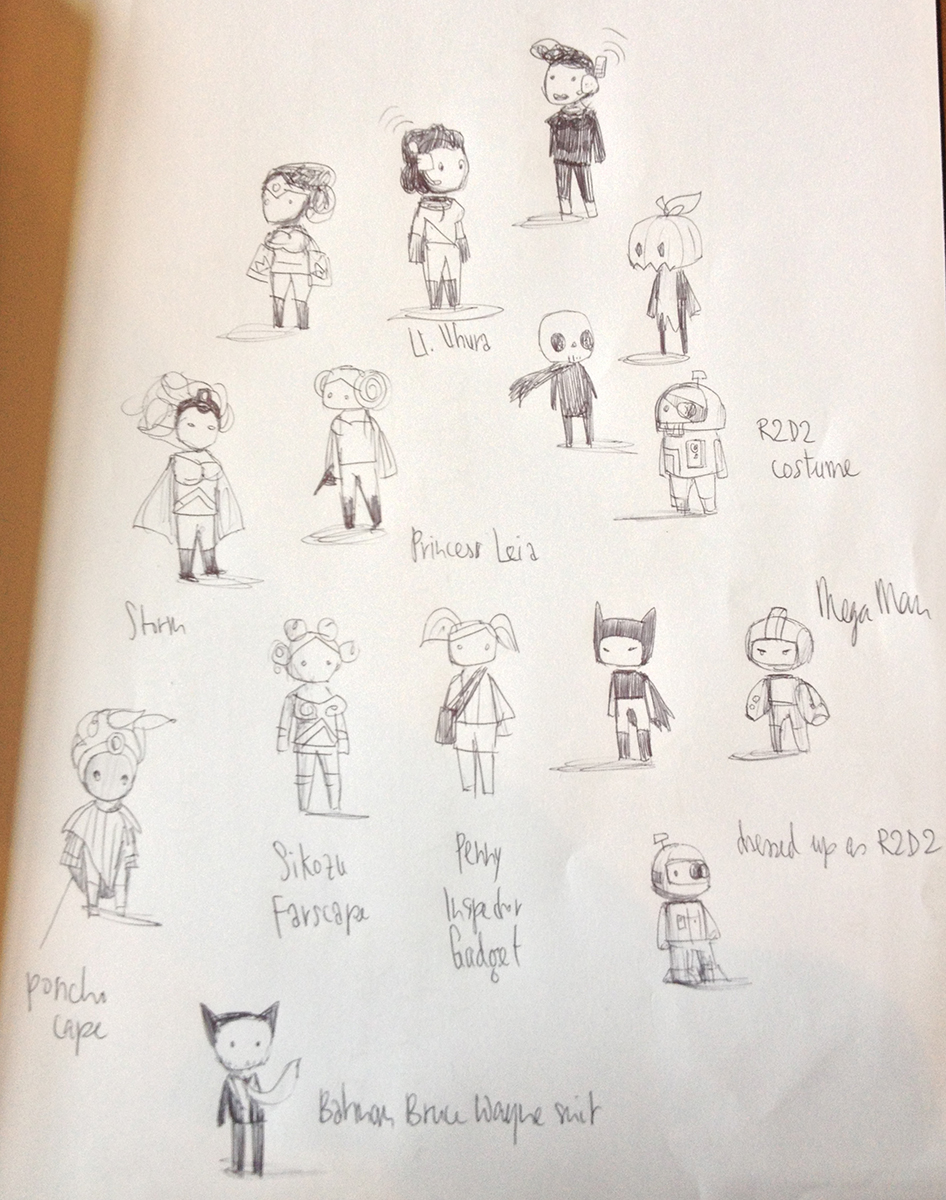 Lt. Uhura
R2D2
costume
Princess Leia
Mega Man
Storm
Sikozu
Farscape
Penny
Inspector
Gadget
dressed up as R2D2
poncho
cape
Batman Bruce Wayne suit